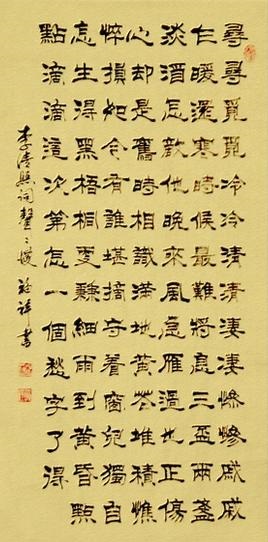 尋尋覓覓冷冷清清淒淒慘慘戚戚
乍暖還寒時候最難將息三盃兩盞
淡酒怎敵他晚來風急雁過也正傷
心却是舊時相識滿地黃花堆積憔
悴損如今有誰堪摘守着窗兒獨自
怎生得黑梧桐更兼細雨到黃昏點
點滴滴這次第怎一個愁字了得
李清照詞聲〻慢 祥書